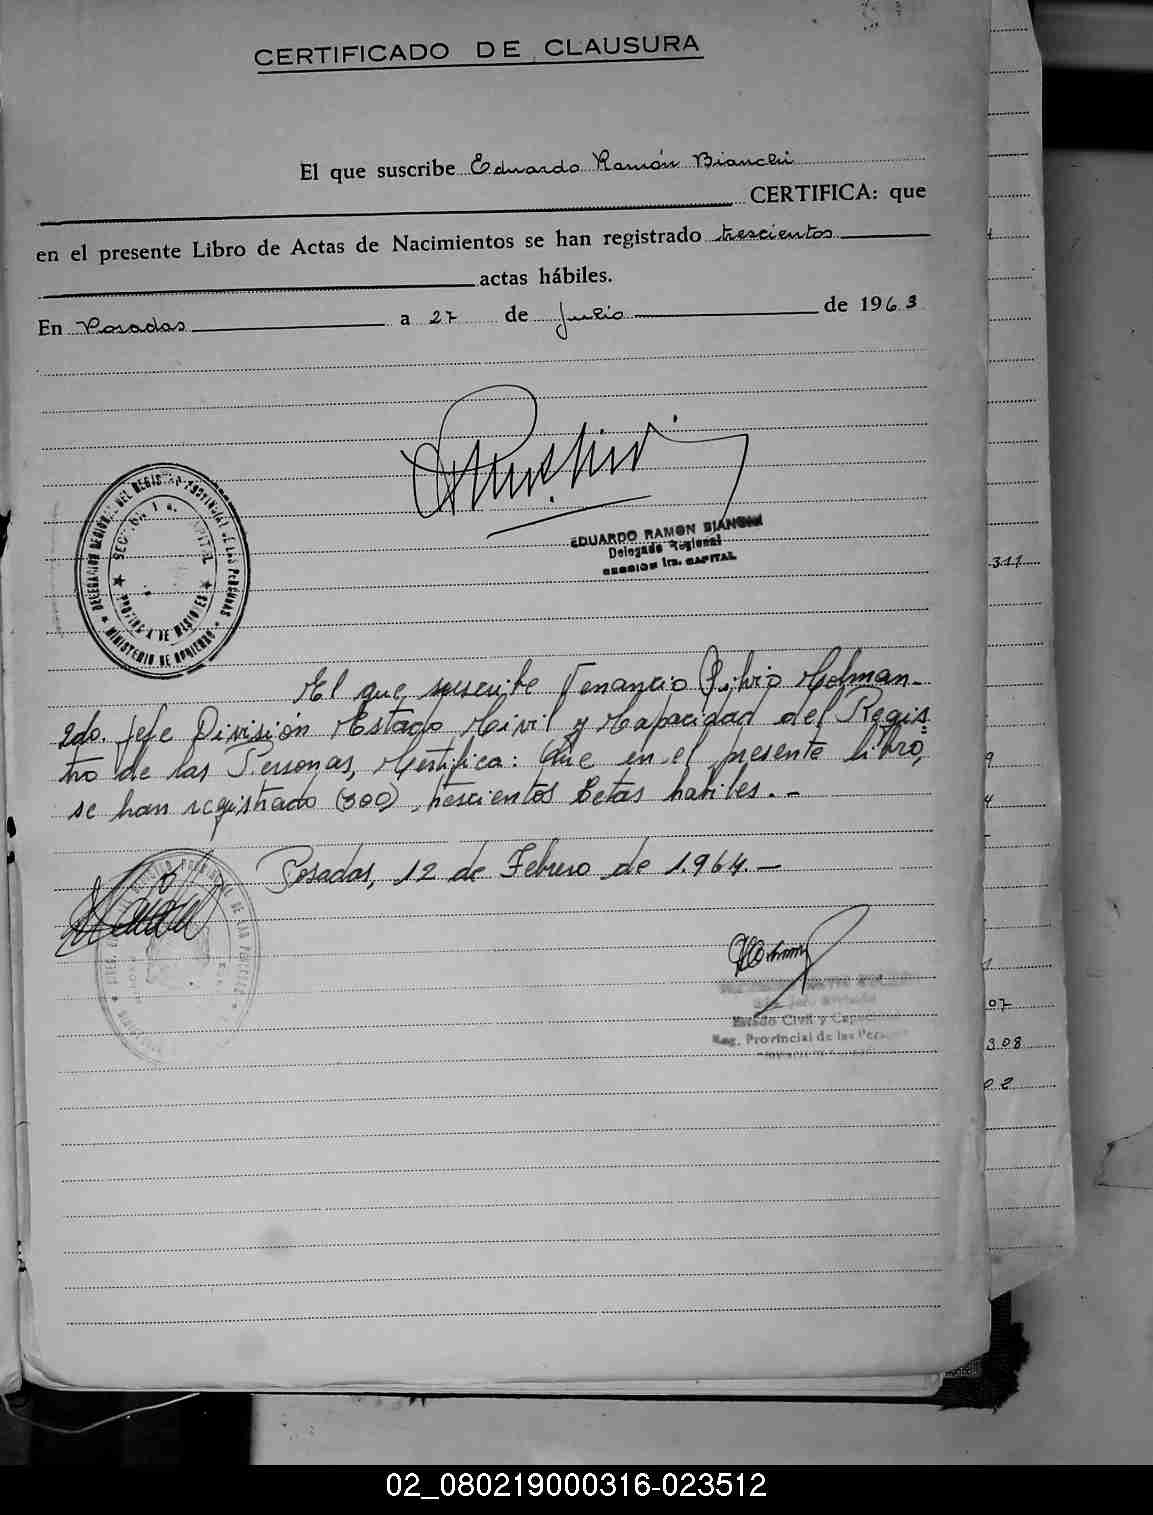 CERTIFICADO DE CLAUSURA
El que suscribe Eduardo Ramón Bianchi
CERTIFICA: que
en el presente Libro de Actas de Nacimientos se han registrado trescientos
actas hábiles.
En Posadas a 27 de Julio de 1963
DELEGACION REGIONAL DEL REGISTRO PROVINCIAL DE LAS PERSONAS
MINISTERIO DE GOBIERNO
PROVINCIA DE MISIONES
EDUARDO RAMON BIANCHI
Delegado Regional
SECCION 1ra. CAPITAL
311
El que suscribe Venancio Silvio Holman-
2do. Jefe División Estado Civil y Capacidad del Regis
tro de las Personas, Certifica: Que en el presente libro,
se han registrado (300) trescientos Actas habiles.-
Posadas, 12 de Febrero de 1.964.-
Estado Civil y Capacidad
Reg. Provincial de las Personas
07
308
02
02_080219000316-023512